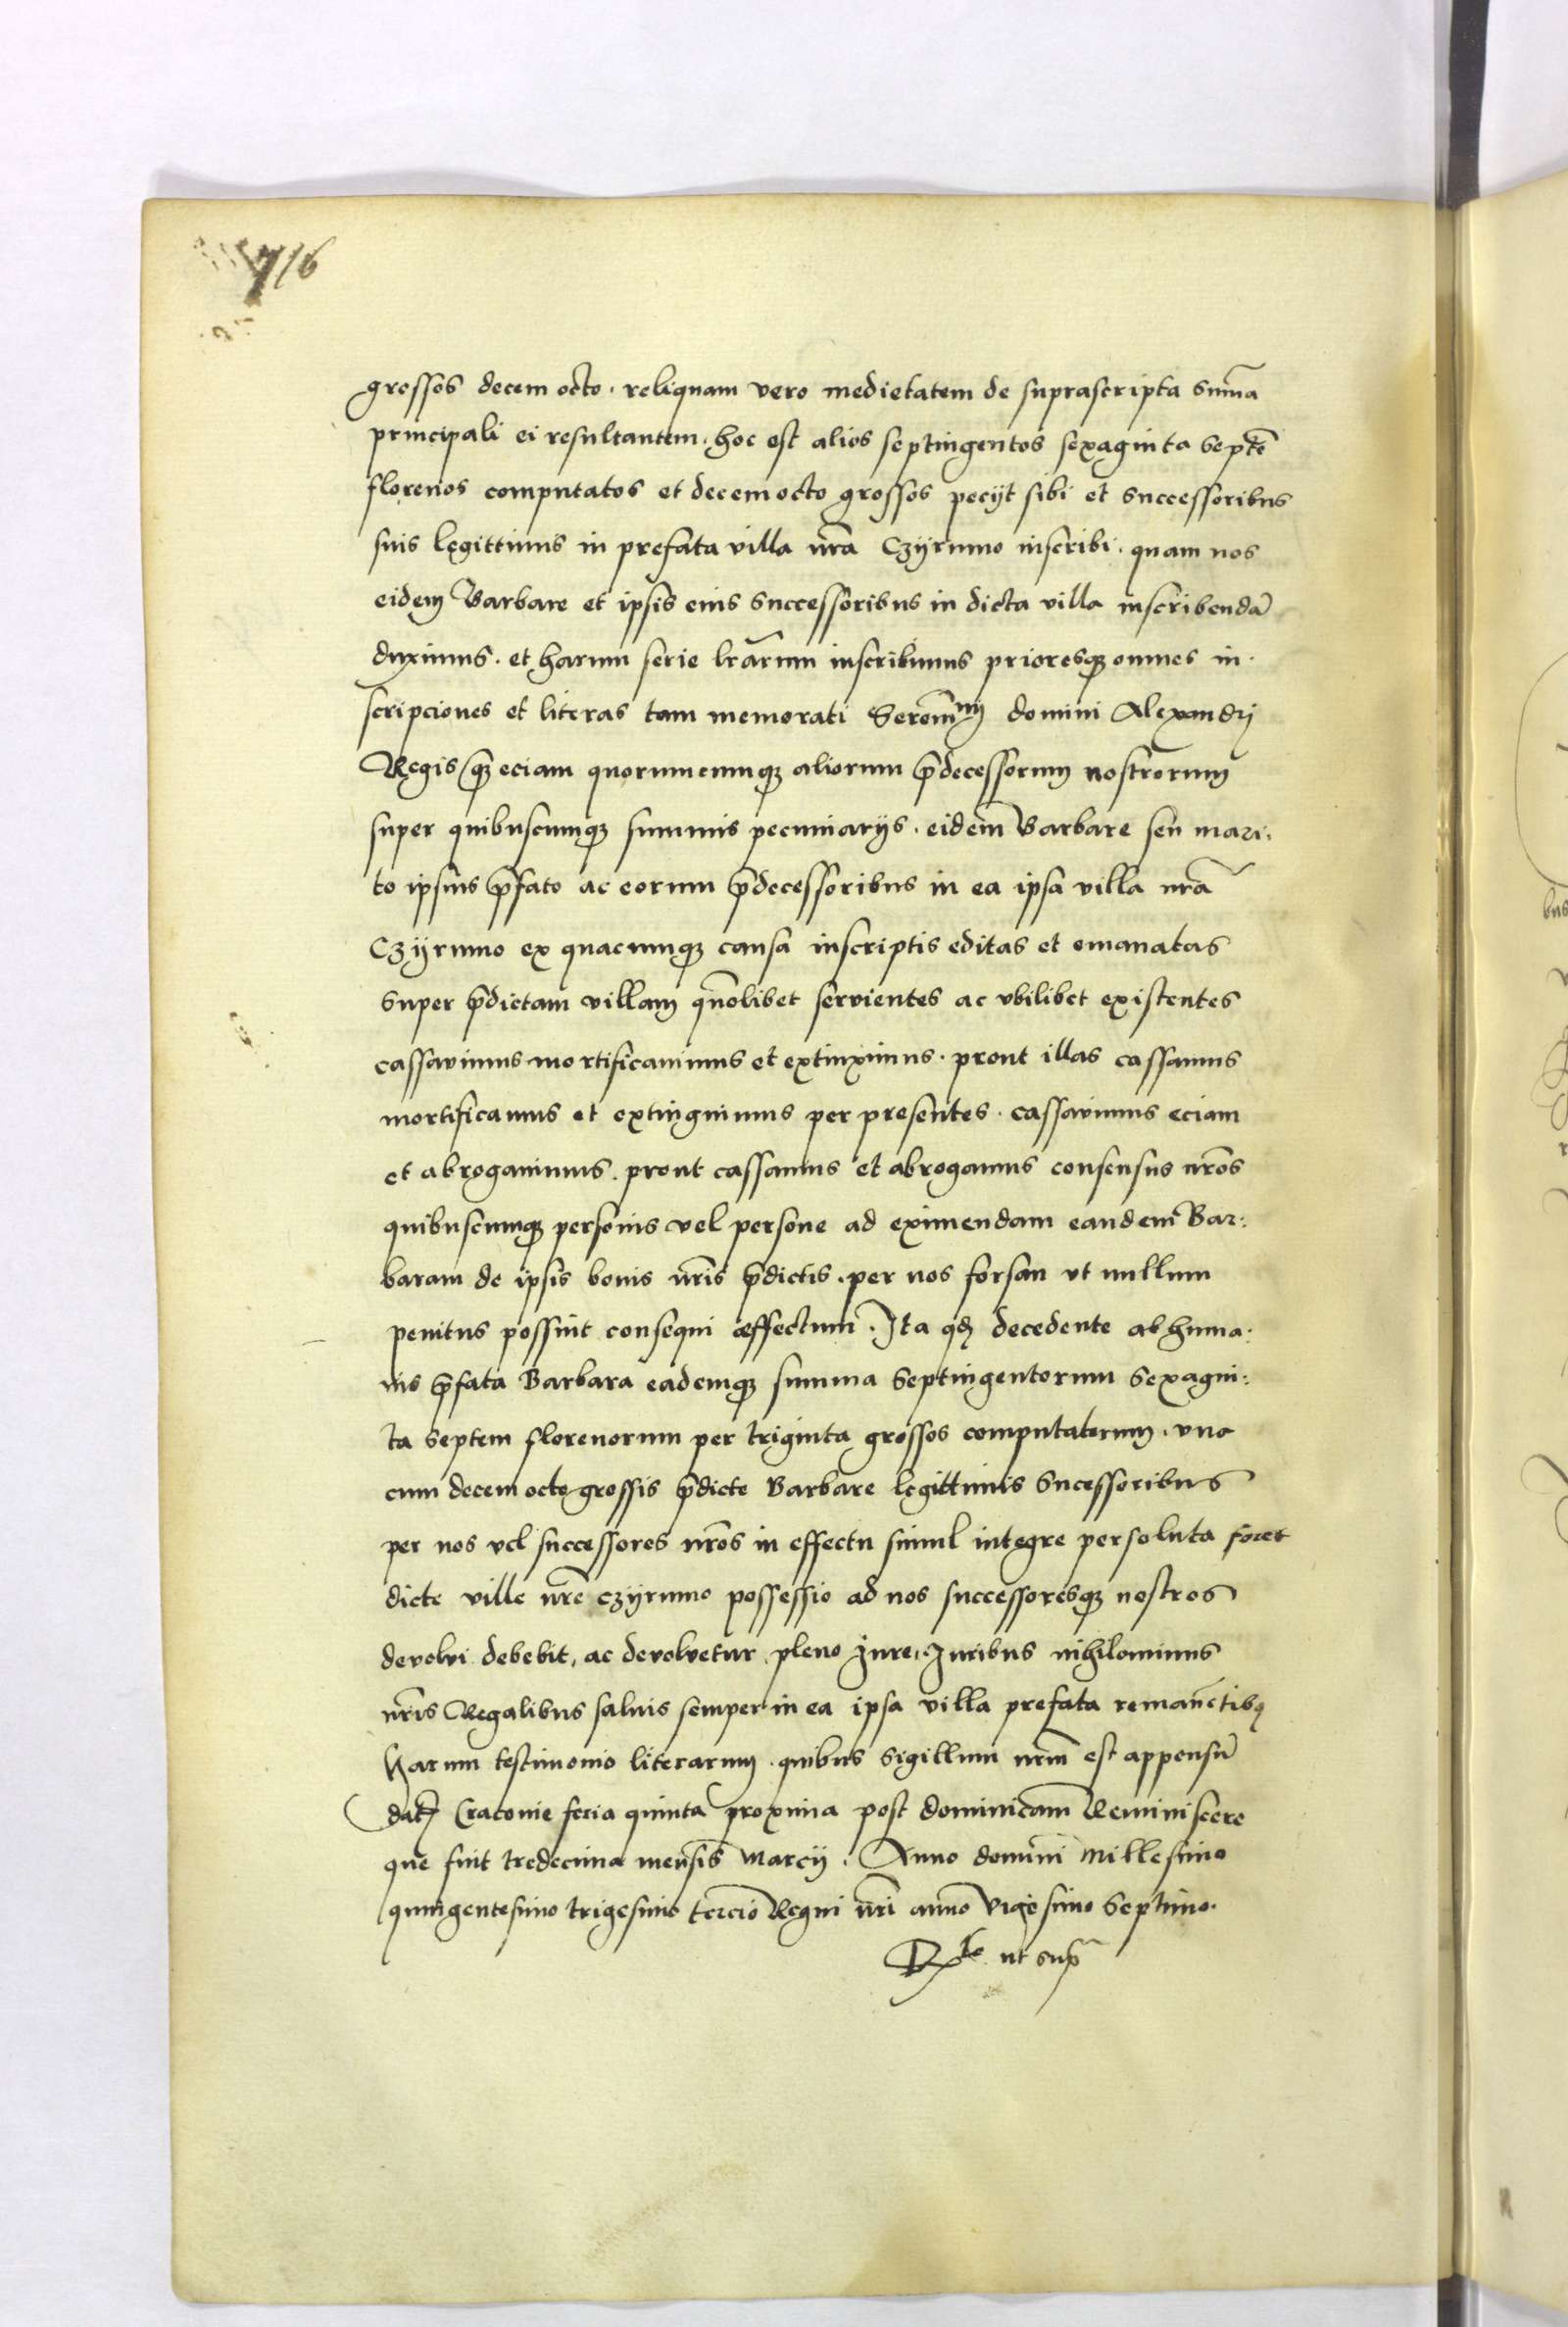 716
grossos decem octo. reliquam vero medietatem de suprascripta sum̃a
principali ei resultantem. hoc est alios septingentos sexaginta septẽ
florenos computatos et decem octo grossos pecijt sibi et successoribus
suis legittimis in prefata villa nr̃a Czyrmno inscribi. quam nos
eidem Barbare et ipsis eius successoribus in dicta villa inscribendã
duximus. et harum serie lr̃arum inscribimus prioresqȝ omnes in·
scripciones et literas tam memorati Serenᵐⁱ domini Alexandri
Regis qȝ eciam quorumcumqȝ aliorum p̃decessorum nostrorum
super quibuscumqȝ summis pecuniarijs. eidem Barbare seu mari:
to ipsius p̃fato ac eorum p̃decessoribus in ea ipsa villa nr̃a
Czyrmno ex quacumqȝ causa inscriptis editas et emanatas
super p̃dictam villam qũolibet servientes ac vbilibet existentes
cassavimus mortificavimus et extinximus. prout illas cassamus
mortificamus et extinguimus per presentes. cassavimus eciam
et abrogavimus. prout cassamus et abrogamus consensus nr̃os
quibuscumqȝ personis vel persone ad eximendam eandem Bar:
baram de ipsis bonis nr̃is p̃dictis. per nos forsan ut nullum
penitus possint consequi effectum. Ita qđ decedente ab huma:
nis p̃fata Barbara eademqȝ summa septingentorum sexagin:
ta septem florenorum per triginta grossos computatorum. una
cum decem octo grossis p̃dicte Barbare legittimis sucessoribus
per nos vel successores nr̃os in effectu simul integre persoluta foret
dicte ville nr̃e Czyrmno possessio ad nos successoresqȝ nostros
devolvi debebit, ac devolvetur pleno Jure. Juribus nihilominus
nr̃is Regalibus salvis semper in ea ipsa villa prefata remanẽtibȝ
Harum testimonio literarum. quibus sigillum nr̃m est appensũ
dat̃ Cracovie feria quinta proxima post dominicam Reminiscere
que fuit tredecima mensis Marcij. Anno domini Millesimo
quingentesimo trigesimo tercio Regni nr̃i anno vigesimo septimo.
Rˡᵒ ut sup̃